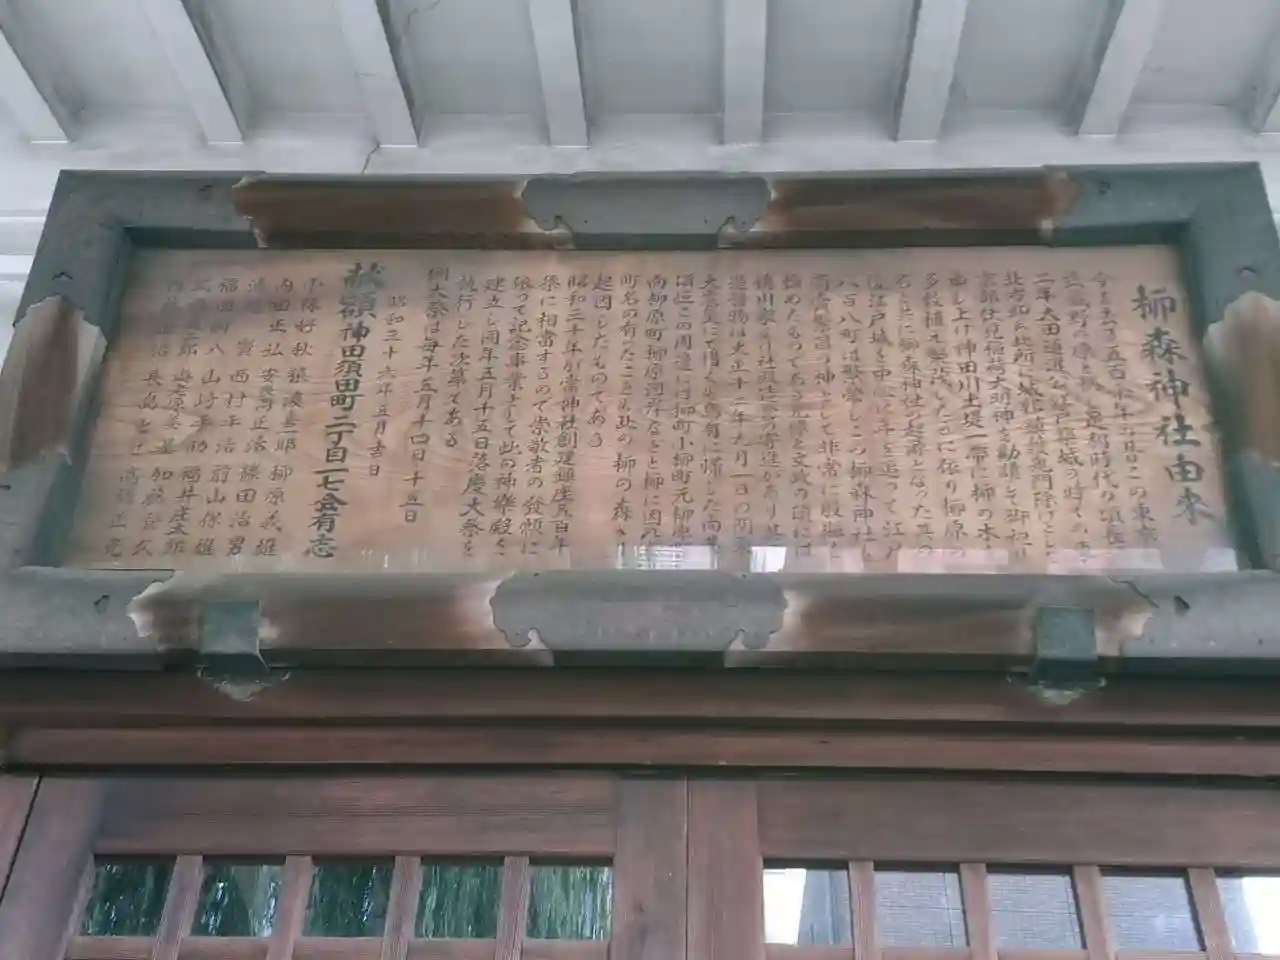 柳森神社由来
二年太田道灌公江戸築城の時
京都伏見稲荷大明神を勧請して御初
申し上げ神田川土堤一帯に柳の木を
多数植え繁茂したるに依り柳原の
名と共に柳森神社の起原となった其の
後江戸城を中心に年を追って江戸
八百八町は繁栄しこの柳森神社も
商売繁昌の神として非常に殷賑を
極めたものである元禄と文政の頃には
徳川家より社殿 の寄進があり其の
大正十二年九月一日の関東
大震災にて惜くも烏有に帰した尚其の
頃迄この周辺には柳町小柳町元柳原町
向柳原町柳原河岸などと柳に因んだ
町名の有ったことも此の柳の森より
起因したものである
昭和三十年が当神社創建鎮座五百年
祭に相当するので崇敬者の発願に
依って記念事業として此の神楽殿を
建立し同年五月十五日落慶大祭を
執行した次第である
例大祭は毎年五月十四日十五日
昭和三十六年五月吉日
献額 神田須田町二丁目一七会有志
小林好秋 猿渡喜一郎 柳原義雄
内田正弘 安斎正治 篠田治男
西村平治 前山保雄
福田新八 山崎平助 福井庄太郎